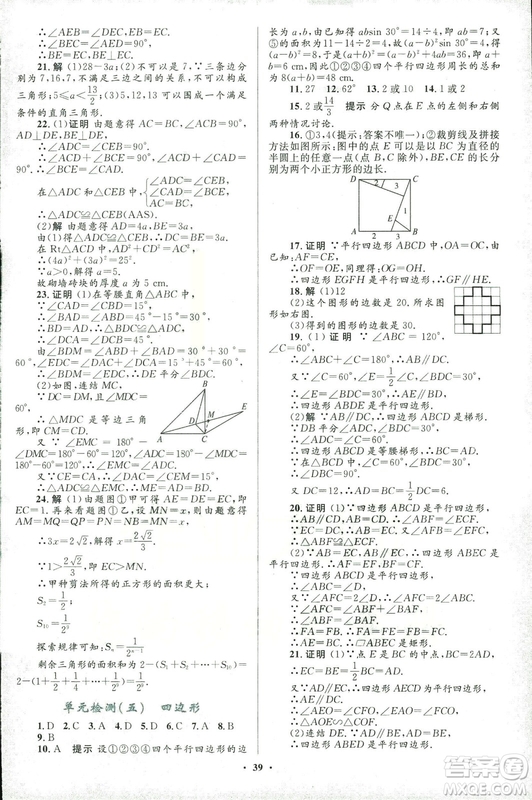 ∴∠AEB=∠ADC.
∴∠AEB=∠C.
21. 解 (1)28-3a;(2)不可以是7.可得三边分别为7,16,7,不满足三边之间的关系,不能构成三角形;5≤a<13/2;(3)可以,5,12,13满足条件的直角三角形.
22. (1)证明 由题意得 AC=BC,∠ACB=90°,
AD⊥DE,BE⊥DE,
∴∠ADC=∠CEB=90°.
∴∠ACD+∠BCE=90°,∠ACD+∠DAC=90°.
∴∠BCE=∠DAC.
在△ADC和△CEB中,{∠ADC=∠CEB,∠DAC=∠BCE,AC=BC,
∴△ADC≌△CEB(AAS).
(2)解 由题意得 AD=4a,BE=3a.
由(1)得△ADC≌△CEB,
∴DC=BE=3a.
在 Rt△ADC中,AD²+CD²=AC²,
∴(4a)²+(3a)²=25².
∵a>0,∴a=5.
故砌墙砖块的厚度 a为5 cm.
23. 证明 (1)在等腰直角△ABC中,
∵∠CAD=∠CBD=15°,
∴∠BAD=∠ABD=45°-15°=30°.
∴BD=AD.∴△BDC≌△ADC.
∴∠DCA=∠DCB=45°.
由∠BDM=∠ABD+∠BAD=30°+30°=60°,∠EDC=∠DAC+∠DCA=15°+45°=60°,
∴∠BDM=∠EDC.∴DE平分∠BDC.
(2)如图,连结 MC.
∵DC=DM,且∠MDC=60°,
∴△MDC 是等边三角形,
即 CM=CD.
又∵∠EMC=180°-∠DMC=180°-60°=120°,∠ADC=180°-∠MDC=180°-60°=120°,
∴∠EMC=∠ADC.
又∵CE=CA,
∴∠DAC=∠CEM.
∴△ADC≌△EMC.∴ME=AD=BD.
24. 解 (1)由题图①可得 AE=DE=EC,即EC=1.再来看题图②,由题意得 AM=MQ=QP=PN=NB=MN.
∴3x=2√2.∴x=2√2/3.
∵1>2√2/3,即 EC>MN.
∴甲种剪法所得的正方形的面积更大;
S₂=1/2;
S₁₀=1/2⁹
探索规律可知:Sₙ=1/2ⁿ⁻¹
剩余三角形的面积和为 2-(S₁+S₂+…+S₁₀)=2-(1+1/2+…+1/2⁹)=1/2⁹.
单元检测(五) 四边形
1. D 2. C 3. B 4. D 5. D 6. A 7. D 8. D 9. B
10. A 提示 设①②③④四个平行四边形的边
长为 a,④的边长为 b,由题意得
①的面积为 absin 30°=14÷4,即 ab=7;又⑤的面积为 11-14÷2=4=(a-b)² sin 30°,所以(a-b)²=8,(a+b)²=(a-b)²+4ab=36.
a+b=6 cm.则①②③④四个平行四边形周长的总和为 4×2(a+b)=48 cm.
11. 27 12. 68° 13. 16 14. 1或2
15. 2或14/3 提示 分 Q 点在 E 点的左侧和右侧两种情况讨论.
16. ①3,4(提示:答案不唯一);②裁剪线及拼接方法如图所示:图中的点 E 可以是以 BC 为直径的半圆上的任意一点(点 B,C 除外).BE,CE 的长分别为两个小正方形的边长.
D C
2 1
3
E
1
2 3
A B
17. 证明 ∵平行四边形 ABCD 中,OA=OC,由已知:AF=CE,
∴OF=OE.同理得 OG=OH.
∴四边形 EGFH 是平行四边形.
18. 解 (1)12
(2)这个图形的边数是 20.所求图形如右图.
(3)得到的图形的边数是 30.
19. (1)证明 ∵∠ABC=120°,∠C=60°,
∴∠ABC+∠C=180°.∴AB∥DC.
又∵∠C=60°,∠E=1/2∠C,∠BDC=30°,
∴∠E=∠BDC=30°.∴AE∥BD.
∴四边形 ABDE 是平行四边形.
(2)解 ∵AB∥DC,∴四边形 ABCD 是梯形.
∵DB 平分∠ADC,∠BDC=30°,
∴∠ADC=∠C=60°.
∴四边形 ABCD 是等腰梯形.∴BC=AD.
∵在△BCD中,∠C=60°,∠BDC=30°,
∴∠DBC=90°.
又 DC=12,∴AD=BC=1/2DC=6.
20. 证明 (1)∵四边形 ABCD 是平行四边形,
∴AB∥DF.∴∠ABF=∠ECF.
∵EC=DC,∴AB=EC.
∵∠ABF=∠ECF,∠AFB=∠EFC,AB=EC,
∴△ABF≌△ECF.
(2)∵AB=EC,AB∥EC,∴四边形 ABEC 是平行四边形.∴AF=EF,BF=CF.
∵四边形 ABCD 是平行四边形,∴∠ABC=∠D.
又∵∠AFC=2∠D,∴∠AFC=2∠ABC.
∵∠AFC=∠ABF+∠BAF,∴∠ABF=∠BAF.
∴FA=FB.∴FA=FE=FB=FC.
∴AE=BC.∴四边形 ABEC 是矩形.
21. (1)证明 ∵点 O 为 AB 的中点,OE=OD,
∴四边形 AEBD 是平行四边形.
∵AB=AC,AD 是∠BAC 的平分线,
∴AD⊥BC,即∠ADB=90°.
∴四边形 AEBD 是矩形.
(2)解 当∠BAC=90°时,矩形 AEBD 是正方形.
∵∠BAC=90°,AB=AC,AD 是∠BAC 的平分线,
∴AD=BD=CD.∵由(1)得四边形 AEBD 是矩形,
∴四边形 AEBD 是正方形.
39
答案圈
MXQE.COM